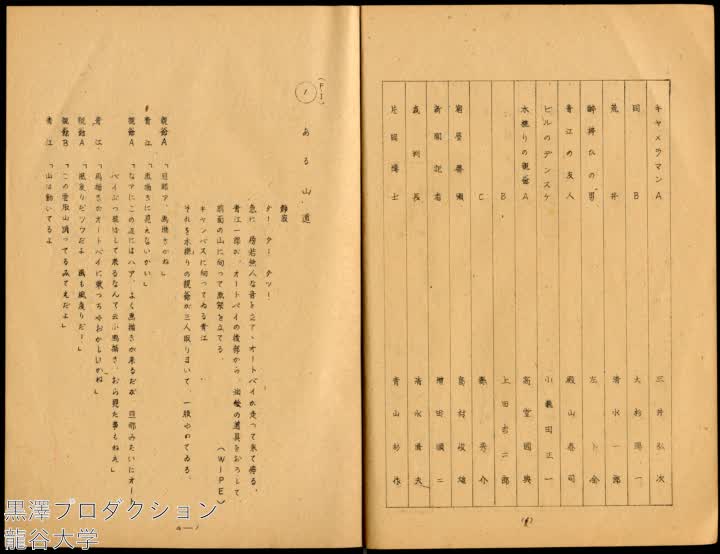 キャメラマンA 三井弘次
同 B 大村陽一
荒井 清水一郎
醉拂ひの男 左卜全
青江の友人 殿山泰司
ビルのデンスケ 小藤田正一
木樵りの親爺A 高堂國典
B 上田吉二郎
C 縣秀介
岩屋醫專 高村俊雄
新聞記者 増田順二
裁判長 清水將夫
片岡博士 青山杉作
(2)
(F・I)
1 ある山道
靜寂
ター ター タツー!
急に 傍若無人な音を立てゝオートバイが走って來て停る。
青江一郎が、オートバイの後部から、油絵の道具をおろして
前面の山に向って画架を立てる。
(WIPE)
キャンバスに向ってゐる青江
それを木樵りの親爺が三人取り巻いて、一服やってゐる。
親爺A「旦那ァ、画描きかね」
青江「画描きに見えないかい」
親爺A「なァにこの辺にはハア、よく画描きが來るだが 旦那みたいにオート
バイぶっ飛ばして來るなんて云ふ画描き、おら見た事もねえ」
青江「画描きがオートバイに乗っちゃおかしいかね」
親爺A「風変りだソウだよ 画も風変りだ!」
親爺B「この雲取山踊ってるみてえだよ」
青江「山は動いてるよ
黒澤プロダクション
龍谷大学